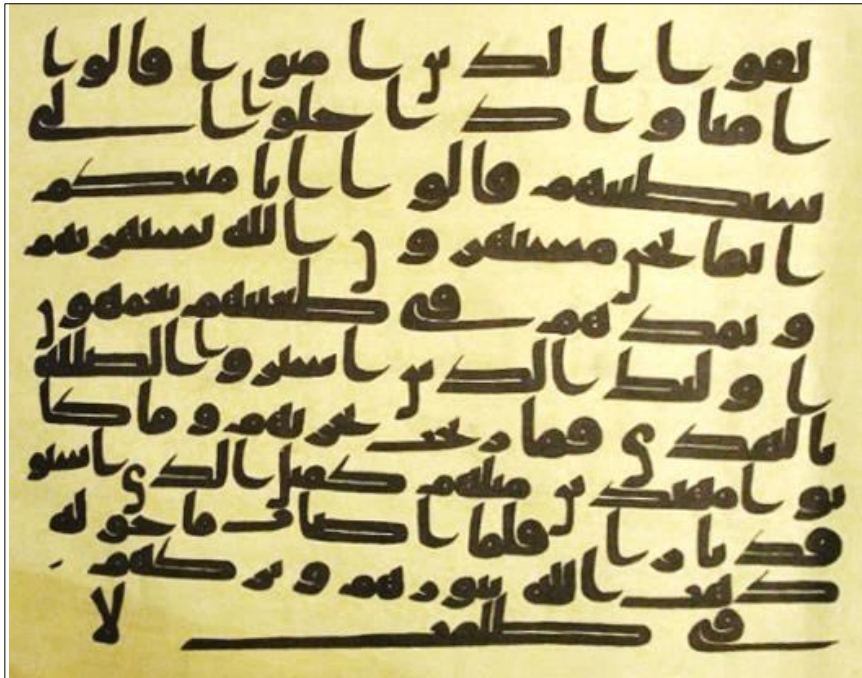 لقوا الذين امنوا قالوا
امنا واذا خلوا الى
شيطينهم قالوا انا معكم
انما نحن مستهزون الله يستهزي بهم
ويمدهم في طغينهم يعمهون
اوليك الذين اشتروا الضللة
بالهدى فما ربحت تجرتهم وما كا
نوا مهتدين مثلهم كمثل الذي استو
قد نارا فلما اضات ما حوله
ذهب الله بنورهم وتركهم
في ظلمت لا